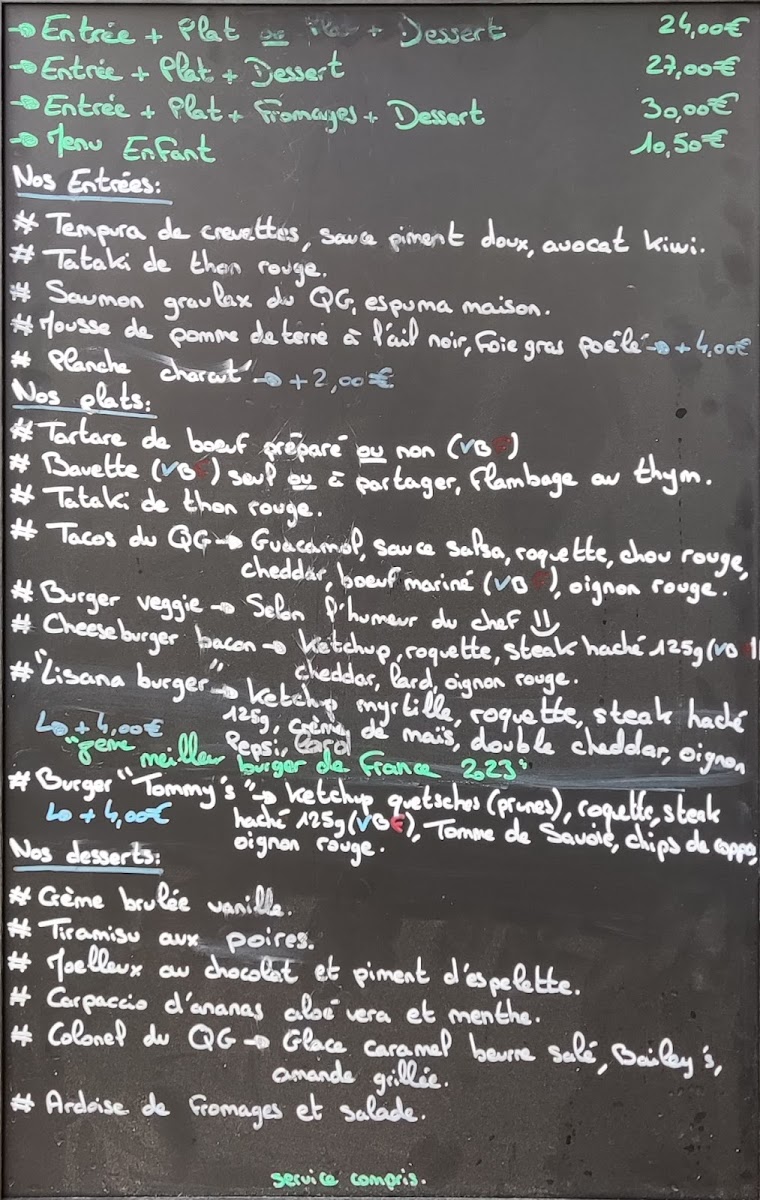 → Entrée + Plat ou Plat + Dessert 24,00€
→ Entrée + Plat + Dessert 27,00€
→ Entrée + Plat + Fromages + Dessert 30,00€
→ Menu Enfant 10,50€
Nos Entrées:
# Tempura de crevettes, sauce piment doux, avocat kiwi.
# Tataki de thon rouge.
# Saumon gravlax du QG, espuma maison.
# Mousse de pomme de terre à l'ail noir, Foie gras poêlé → + 4,00€
# Planche charcut' → + 2,00€
Nos plats:
# Tartare de boeuf préparé ou non (VBF)
# Bavette (VBF) seul ou à partager, Flambage au thym.
# Tataki de thon rouge.
# Tacos du QG → Guacamol, sauce salsa, roquette, chou rouge,
cheddar, boeuf mariné (VBF), oignon rouge.
# Burger veggie → Selon l'humeur du chef =)
# Cheeseburger bacon → Ketchup, roquette, steak haché 125g (VBF)
cheddar, lard, oignon rouge.
# "Lisana burger" → Ketchup myrtille, roquette, steak haché
↳ + 4,00€ 125g, crème de maïs, double cheddar, oignon
Pepsi, lard
"2ème meilleur burger de France 2023"
# Burger "Tommy's" → Ketchup quetsches (prunes), roquette, steak
↳ + 4,00€ haché 125g (VB€), Tomme de Savoie, chips de coppa,
oignon rouge.
Nos desserts:
# Crème brulée vanille.
# Tiramisu aux poires.
# Moelleux au chocolat et piment d'espelette.
# Carpaccio d'ananas aloé vera et menthe.
# Colonel du QG → Glace caramel beurre salé, Bailey's,
amande grillée.
# Ardoise de Fromages et salade.
service compris.